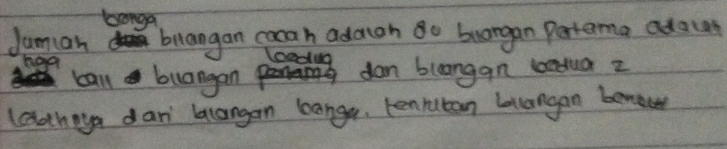 Jumlah banga bilangan cacah adalah 80 bilangan Pertama adalah
kali bilangan kedua dan bilangan kedua 2
lebihnya dari bilangan banga. tentukan bilangan